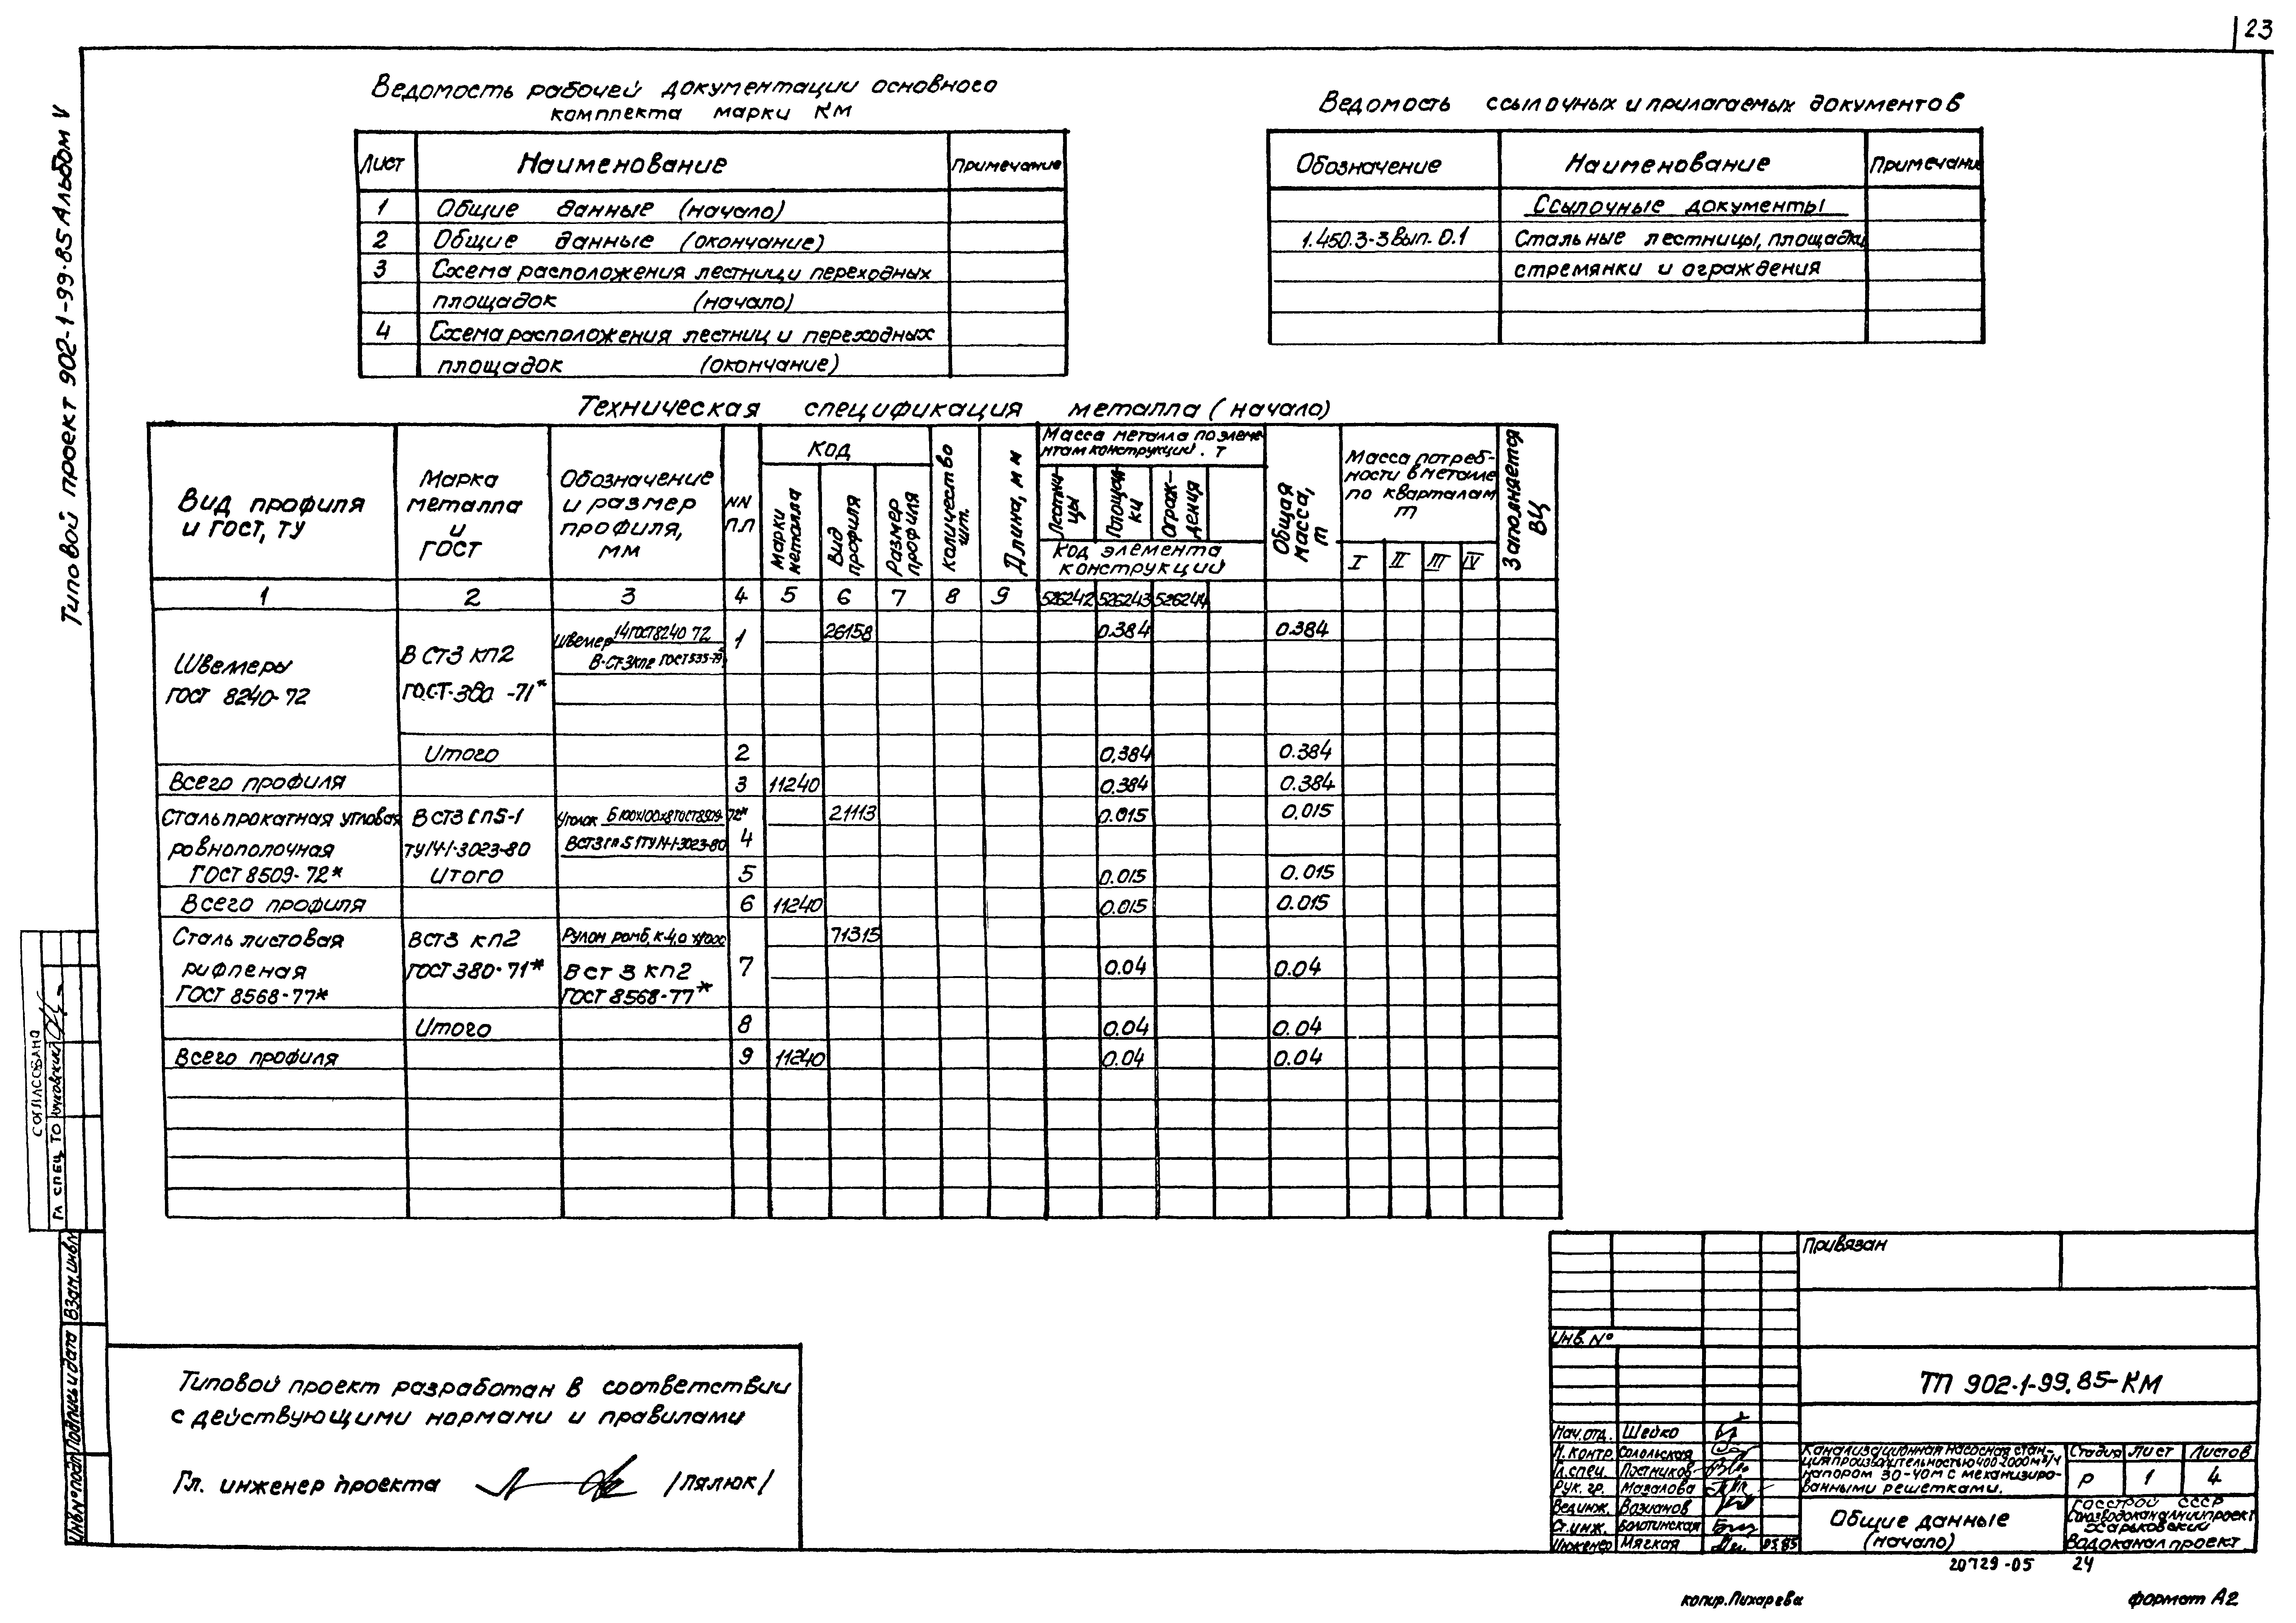 23
Типовой проект 902-1-99·85 Альбом V
Ведомость рабочей документации основного
комплекта марки КМ
Лист Наименование Примечание
1 Общие данные (начало)
2 Общие данные (окончание)
3 Схема расположения лестниц и переходных
площадок (начало)
4 Схема расположения лестниц и переходных
площадок (окончание)
Ведомость ссылочных и прилагаемых документов
Обозначение Наименование Примечание
Ссылочные документы
1.450.3-3 вып. 0.1 Стальные лестницы, площадки
стремянки и ограждения
Техническая спецификация металла (начало)
Вид профиля
и ГОСТ, ТУ
Марка
металла
и
ГОСТ
Обозначение
и размер
профиля,
мм
NN
п.п
Код
Марки металла
Вид профиля
Размер профиля
Количество шт.
Длина, мм
Масса металла по элеме-
нтам конструкций. т
Лестни-
цы
Площад-
ки
Ограж-
дения
Код элемента
конструкций
Общая масса, т
Масса потреб-
ности в металле
по кварталам
т
I II III IV
Заполняется ВЦ
1 2 3 4 5 6 7 8 9 526242 526243 526244
Швеллеры
ГОСТ 8240-72
В СТ3 кп2
ГОСТ-380-71*
Швеллер 14 ГОСТ 8240 72
В-СТ3кп2 ГОСТ 535-79
1 26158 0.384 0.384
Итого 2 0.384 0.384
Всего профиля 3 11240 0.384 0.384
Сталь прокатная угловая
ровнополочная
ГОСТ 8509-72*
В СТ3 сп5-1
ТУ14-1-3023-80
Уголок Б100х100х8 ГОСТ 8509-72*
ВСТ3 сп.5-1 ТУ14-1-3023-80
4 21113 0.015 0.015
Итого 5 0.015 0.015
Всего профиля 6 11240 0.015 0.015
Сталь листовая
рифленая
ГОСТ 8568-77*
ВСТ3 кп2
ГОСТ 380-71*
Рулон ромб. К-4,0
В СТ 3 кп2
ГОСТ 8568-77*
7 71315 0.04 0.04
Итого 8 0.04 0.04
Всего профиля 9 11240 0.04 0.04
СОГЛАСОВАНО
Гл спец ТО
Взам.инв.№
Подпись и дата
Инв.№ подл
Типовой проект разработан в соответствии
с действующими нормами и правилами
Гл. инженер проекта /Пялюк/
Привязан
Инв. №
ТП 902-1-99.85-КМ
Нач.отд. Шейко
Н.контр. Сопольская
Гл.спец. Постников
Рук. гр. Мазалова
Вед.инж. Вазианов
Ст.инж. Болотинская
Инженер Мягкая 05.85
Канализационная насосная стан-
ция производительностью 400-2000м³/ч
напором 30-40м с механизиро-
ванными решетками.
Стадия Лист Листов
Р 1 4
Общие данные
(начало)
Госстрой СССР
Союзводоканалниипроект
Харьковский
Водоканалпроект
20729-05 24
копир.Лихарева формат А2